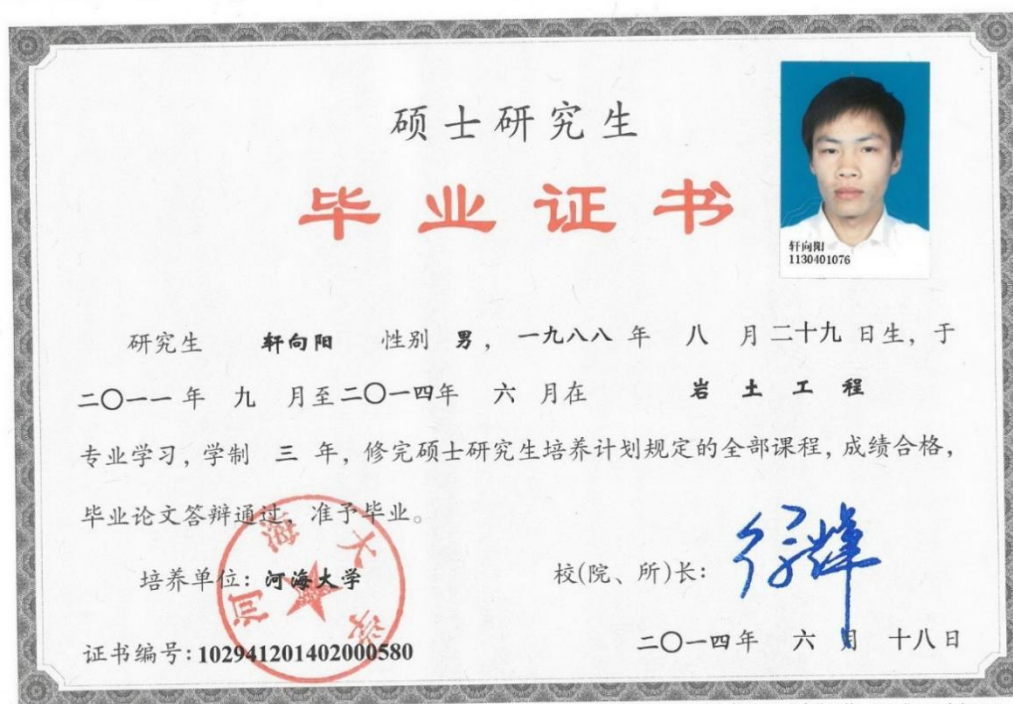 硕士研究生
毕业证书
轩向阳
1130401076
研究生 轩向阳 性别 男，一九八八 年 八 月 二十九 日生，于
二〇一一 年 九 月至二〇一四年 六 月在 岩土工程
专业学习，学制 三 年，修完硕士研究生培养计划规定的全部课程，成绩合格，
毕业论文答辩通过，准予毕业。
河海大学
培养单位：河海大学
校(院、所)长：
徐辉
证书编号：102941201402000580
二〇一四年 六 月 十八日